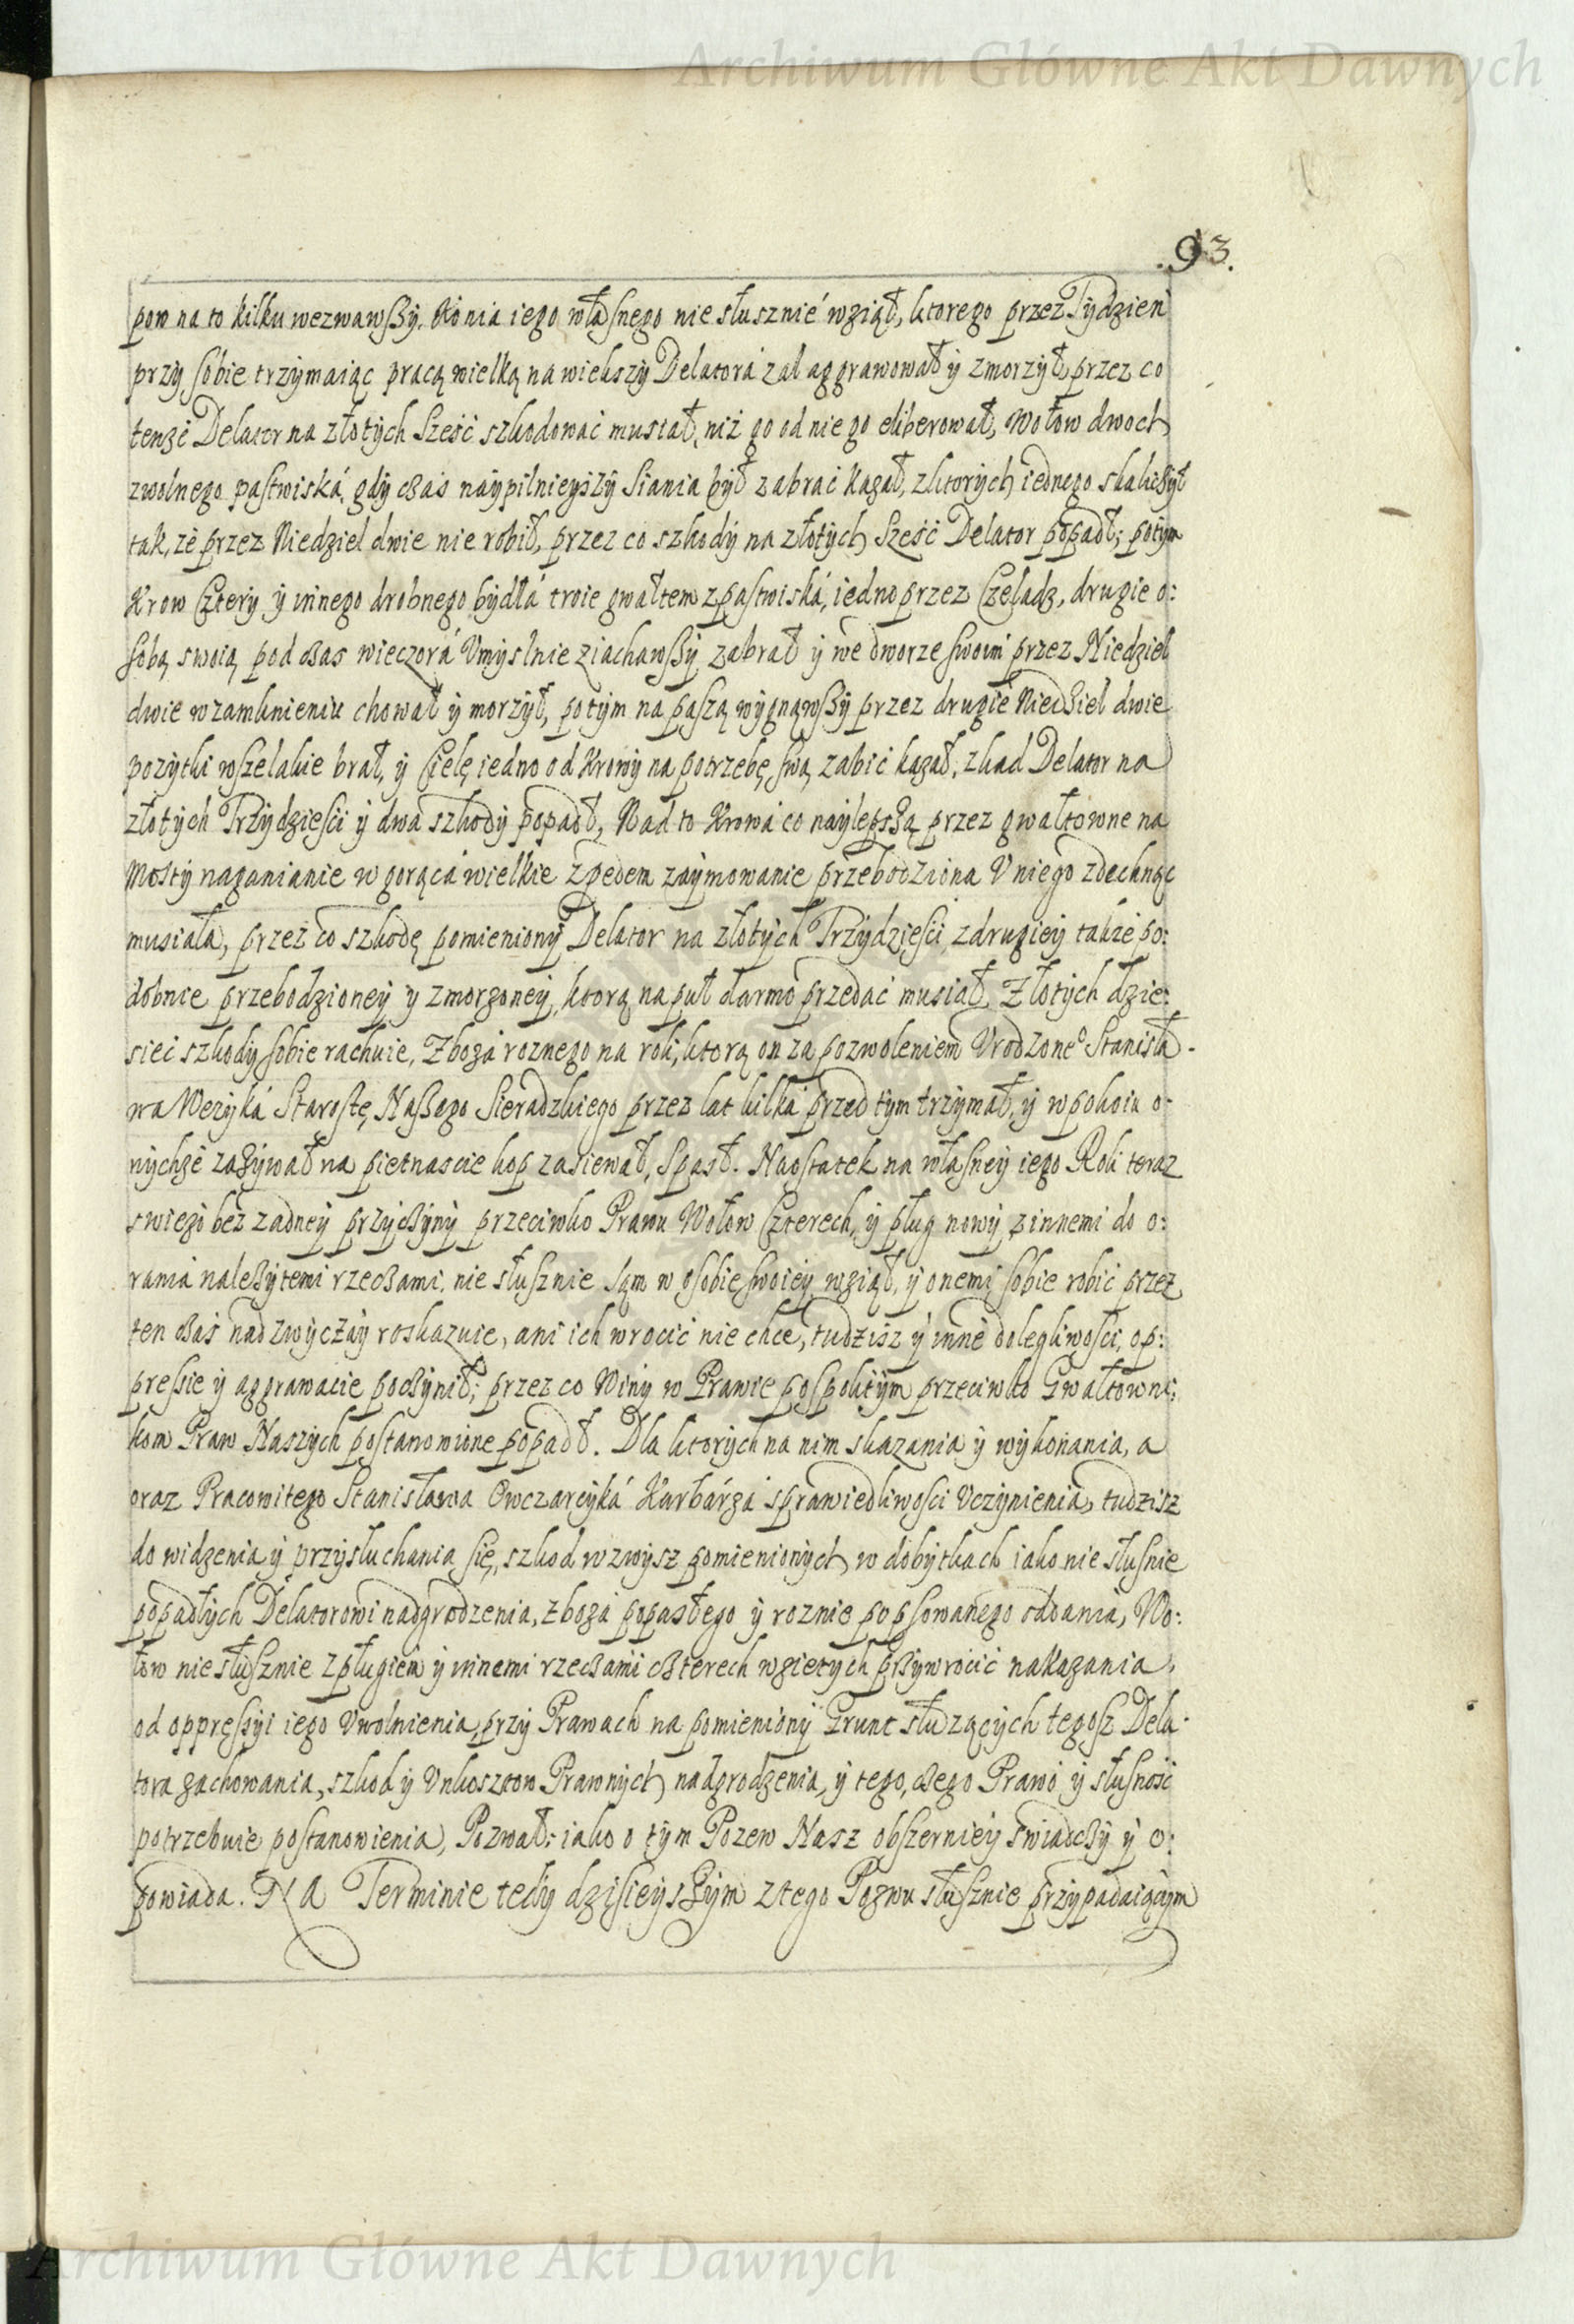 Archiwum Główne Akt Dawnych
.93.
pow na to kilku wezwawszy, Konia iego własnego nie słusznié wziął, ktorego przez Tydzień
przy sobie trzymaiąc pracą wielką na wiekszy Delatorá zal aggrawował y zmorzył, przez co
tenże Delator na złotych Sześć szkodować musiał, niż go od niego eliberował, Wołow dwoch
zwolnego pastwiská, gdy czas naypilnieyszy Siania był zabrać kazał, z ktorych iednego skaliczył
tak, że przez Niedziel dwie nie robił, przez co szkody na złotych Sześć Delator popadł; potym
Krow Cztery y innego drobnego bydłá troie gwałtem z pastwiská, iedno przez Czeladz, drugie o:
sobą swoią pod czas wieczorá Vmyslnie ziachawszy zabrał y we dworze swoim przez Niedziel
dwie w zamknieniu chował y morzył, potym na paszą wygnąwszy przez drugie Niedziel dwie
pozytki wszelakie brał, y Cielę iedno od Krowy na potrzebę swą zabić kazał, zkad Delator na
złotych Trzydzieści y dwa szkody popadł, Nad to Krowá co naylepszą przez gwałtowne na
Mosty naganianie w gorącá wielkie z pedem zaymowanie przebodziona V niego zdechnąć
musiała, przez co szkodę pomieniony Delator na złotych Trzydzieści, z drugiey także po:
dobnie przebodzioney y zmorzoney, ktorą na puł darmo przedać musiał, Złotych dzie:
sieć szkody sobie rachuie, Zboża roznego na roli, ktorą on za pozwoleniem Vrodzone° Stanisła-
wa Wezyká Starostę Naszego Sieradzkiego przez lat kilka przed tym trzymał, y w pokoiu o-
nychże zażywał na pietnascie kop zasiewał, spasł. Naostatek na własney iego Roli teraz
swiezo bez zadney przyczyny przeciwko Prawu Wołow Czterech, y pług nowy z innemi do o:
rania należytemi rzeczami, nie słusznie sąm w osobie swoiey wziął, y onemi sobie robić przez
ten czas nad zwyczay roskazuie, ani ich wrocić nie chce, tudzisz y inne dolegliwości, op:
pressie y aggrawacie poczynił; przez co Winy w Prawie pospolitym przeciwko Gwałtowni:
kom Praw Naszych postanowione popadł. Dla ktorych na nim skazania y wykonania, a
oraz Pracowitego Stanisława Owczarcyká Karbárza sprawiedliwości Vczynienia, tudzisz
do widzenia y przysłuchania się, szkod wzwysz pomienionych w dobytkach iako nie słusnie
popadłych Delatorowi nadgrodzenia, zboża popasłego y roznie popsowanego oddania, Wo:
łow nie słusznie z pługiem y innemi rzeczami czterech wzietych przywrocić nakazania,
od oppressyi iego Vwolnienia, przy Prawach na pomieniony Grunt służących tegosz Dela-
tora zachowania, szkod y Vnkosztow Prawnych nadgrodzenia, y tego, czego Prawo y słusność
potrzebuie postanowienia, Pozwał; iako o tym Pozew Nasz obszerniey swiadczy y o:
powiada. NA Terminie tedy dzisieyszym z tego Pozwu słusznie przypadaiącym
Archiwum Główne Akt Dawnych